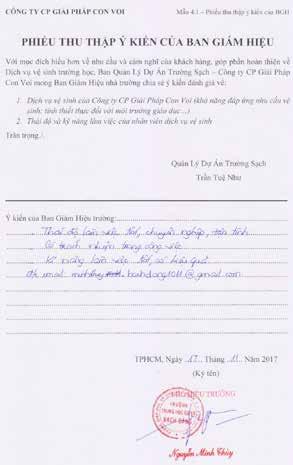 CÔNG TY CP GIẢI PHÁP CON VOI
Mẫu 4.1 – Phiếu thu thập ý kiến của BGH
PHIẾU THU THẬP Ý KIẾN CỦA BAN GIÁM HIỆU
Với mục đích hiểu hơn về nhu cầu và cảm nghĩ của khách hàng, góp phần hoàn thiện về
Dịch vụ vệ sinh trường học, Ban Quản Lý Dự Án Trường Sạch – Công ty CP Giải Pháp
Con Voi mong Ban Giám Hiệu nhà trường chia sẻ ý kiến đánh giá về:
1. Dịch vụ vệ sinh của Công ty CP Giải Pháp Con Voi (khả năng đáp ứng nhu cầu vệ
sinh; tính thiết thực đối với môi trường giáo dục…)
2. Thái độ và kỹ năng làm việc của nhân viên dịch vụ vệ sinh
Trân trọng./.
Quản Lý Dự Án Trường Sạch
Trần Tuệ Như
Ý kiến của Ban Giám Hiệu trường:
Thái độ làm việc tốt, chuyên nghiệp, tận tình
Có trách nhiệm trong công việc
Kĩ năng làm việc tốt, có hiệu quả
TPHCM, Ngày 17 Tháng 11 Năm 2017
(Ký tên)
HIỆU TRƯỞNG
TRƯỜNG
TRUNG HỌC CƠ SỞ
BẠCH ĐẰNG
Nguyễn Minh Thùy